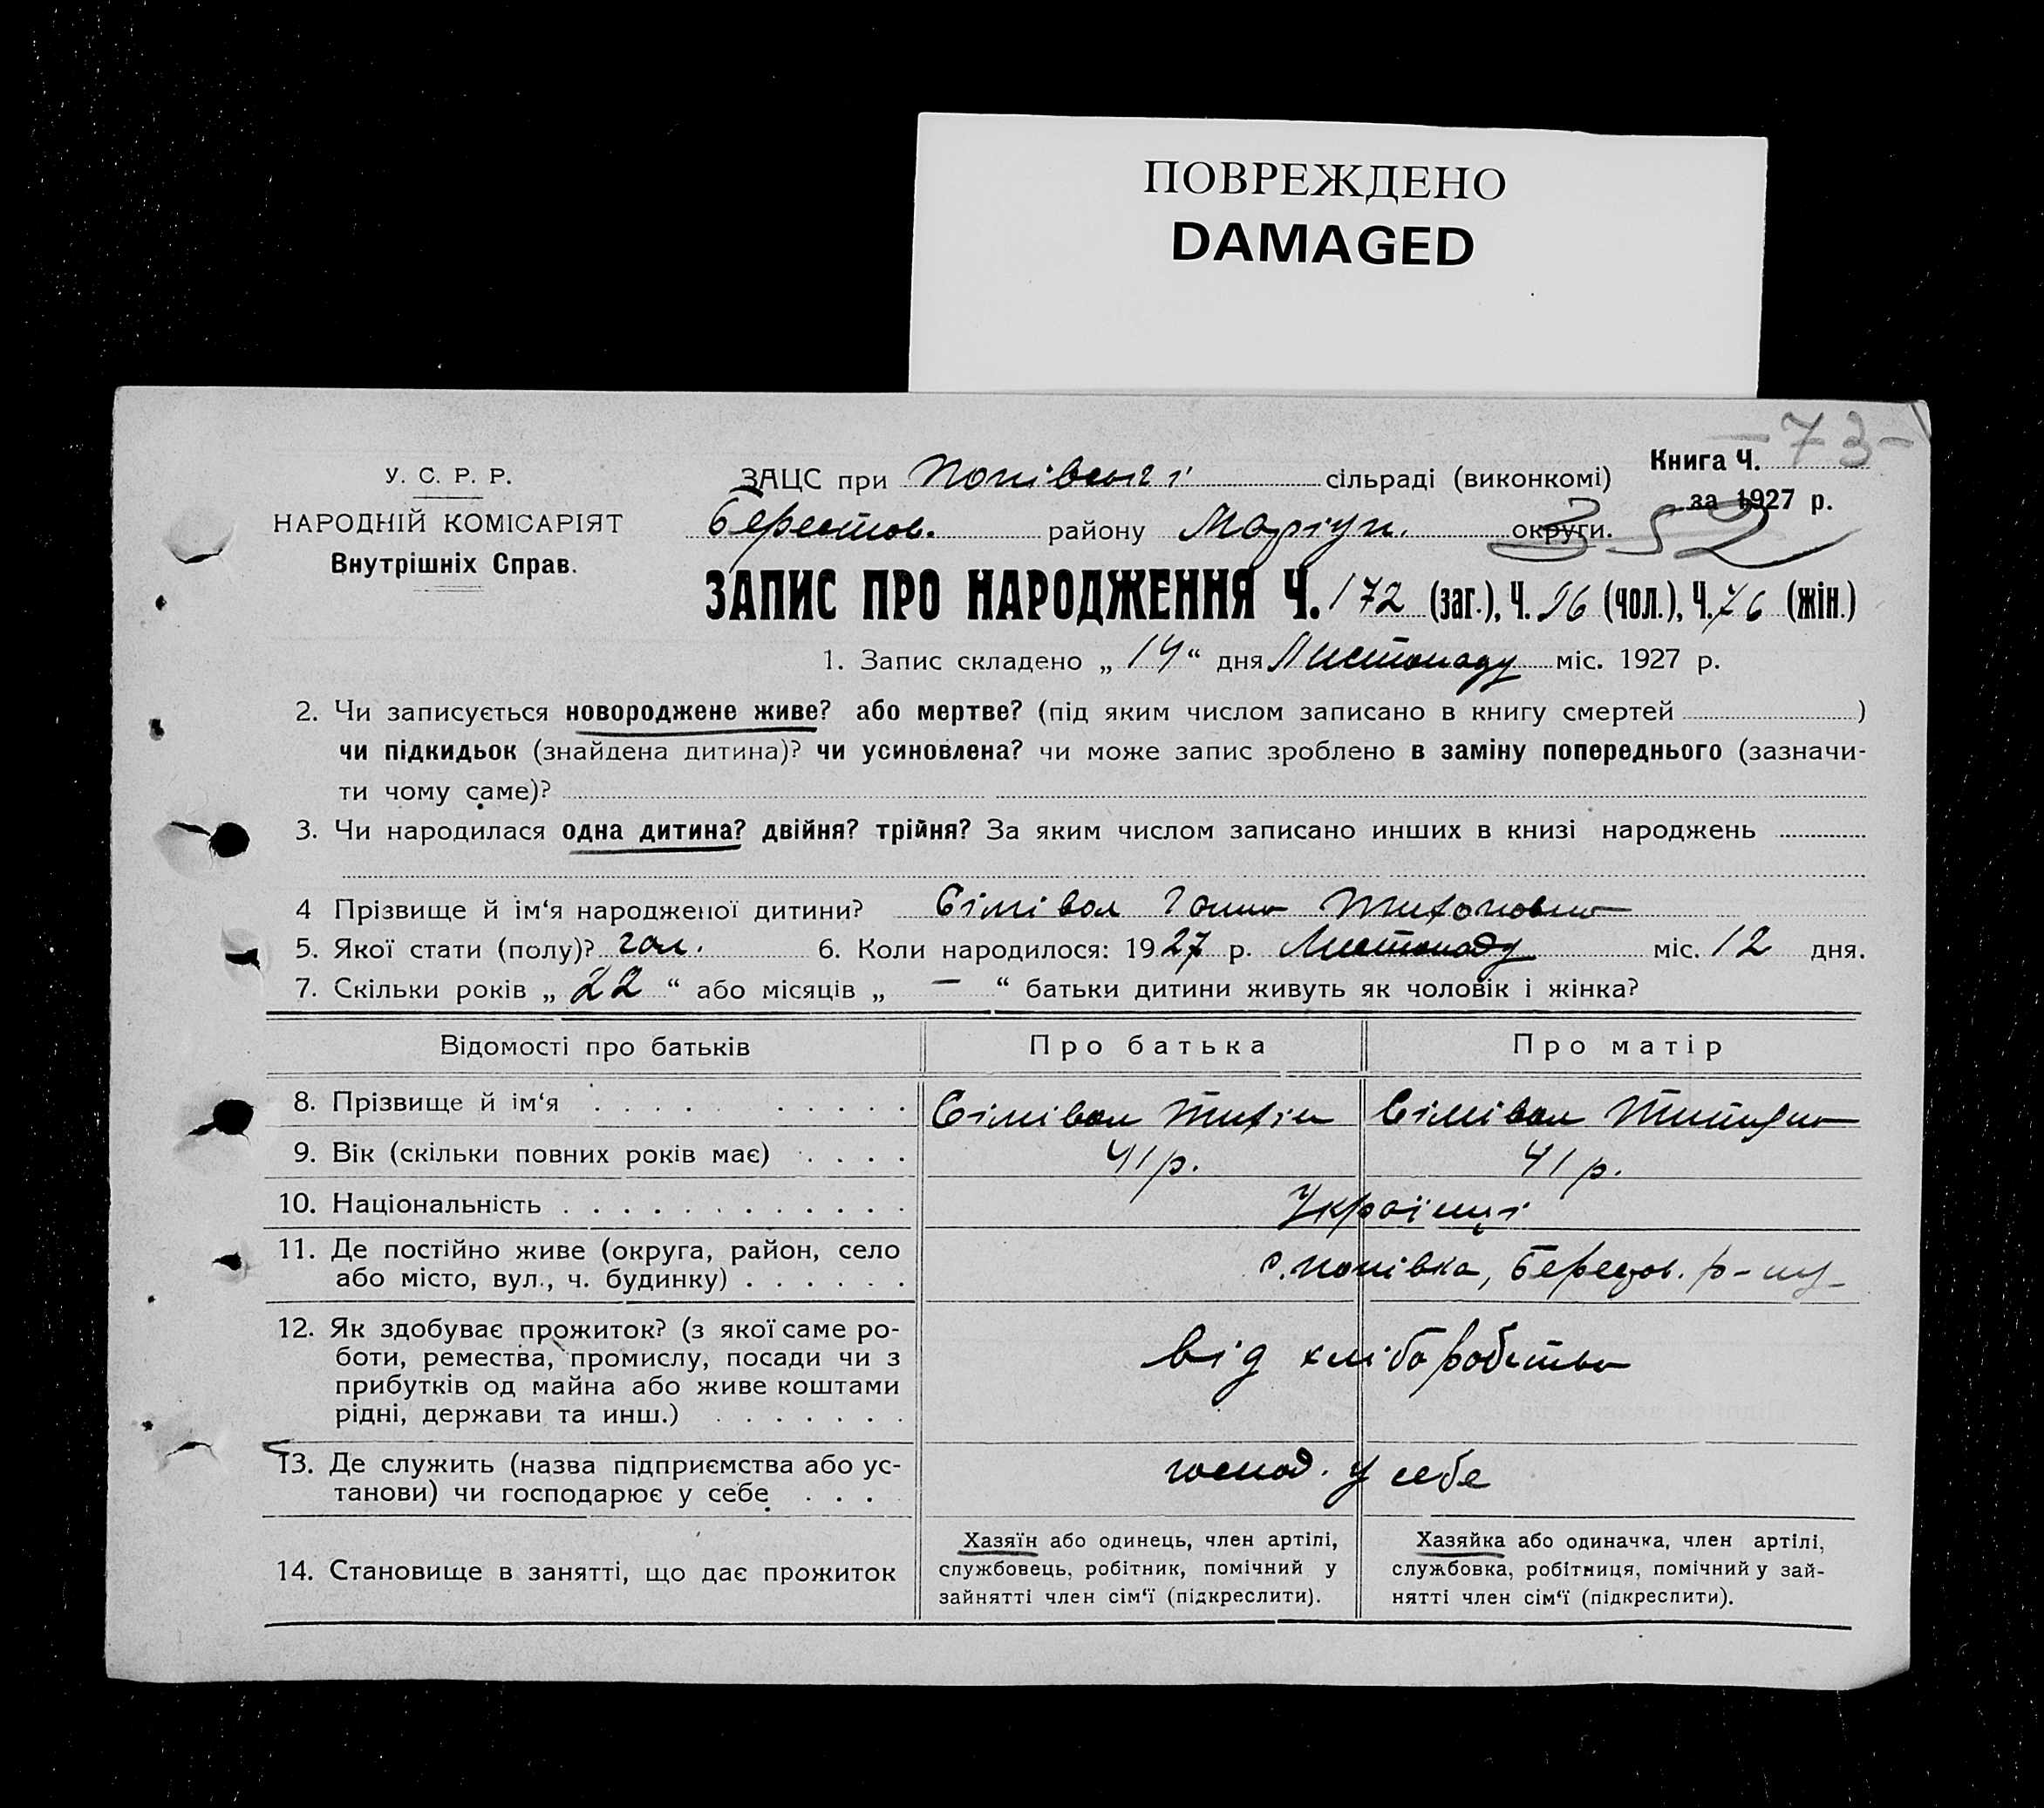 ПОВРЕЖДЕНО
DAMAGED
—73—
У. С. Р. Р.
НАРОДНІЙ КОМІСАРІЯТ
Внутрішніх Справ.
ЗАЦС при Попівській сільраді (виконкомі)
Книга Ч.
за 1927 р.
Берестов. району Маріуп. округи.
352
ЗАПИС ПРО НАРОДЖЕННЯ Ч. 172 (заг.), Ч. 96 (чол.), Ч. 76 (жін.)
1. Запис складено „ 14 “ дня Листопаду міс. 1927 р.
2. Чи записується новороджене живе? або мертве? (під яким числом записано в книгу смертей )
чи підкидьок (знайдена дитина)? чи усиновлена? чи може запис зроблено в заміну попереднього (зазначи-
ти чому саме)?
3. Чи народилася одна дитина? двійня? трійня? За яким числом записано инших в книзі народжень
4 Прізвище й ім‘я народженої дитини? Сімівол Ганна Тихоновна
5. Якої стати (полу)? 6. Коли народилося: 1927 р. Листопаду міс. 12 дня.
7. Скільки років „ 22 “ або місяців „ — “ батьки дитини живуть як чоловік і жінка?
Відомості про батьків Про батька Про матір
8. Прізвище й ім‘я Сімівол Тихін Сімівол
9. Вік (скільки повних років має) 41 р. 41 р.
10. Національність Українці
11. Де постійно живе (округа, район, село
або місто, вул., ч. будинку) с. Попівка, Берестов. р-ну
12. Як здобуває прожиток? (з якої саме ро-
боти, ремества, промислу, посади чи з
прибутків од майна або живе коштами
рідні, держави та инш.)
Від хліборобства
13. Де служить (назва підприємства або ус-
танови) чи господарює у себе
господ. у себе
14. Становище в занятті, що дає прожиток
Хазяїн або одинець, член артілі,
службовець, робітник, помічний у
зайнятті член сім‘ї (підкреслити).
Хазяйка або одиначка, член артілі,
службовка, робітниця, помічний у зай-
нятті член сім‘ї (підкреслити).